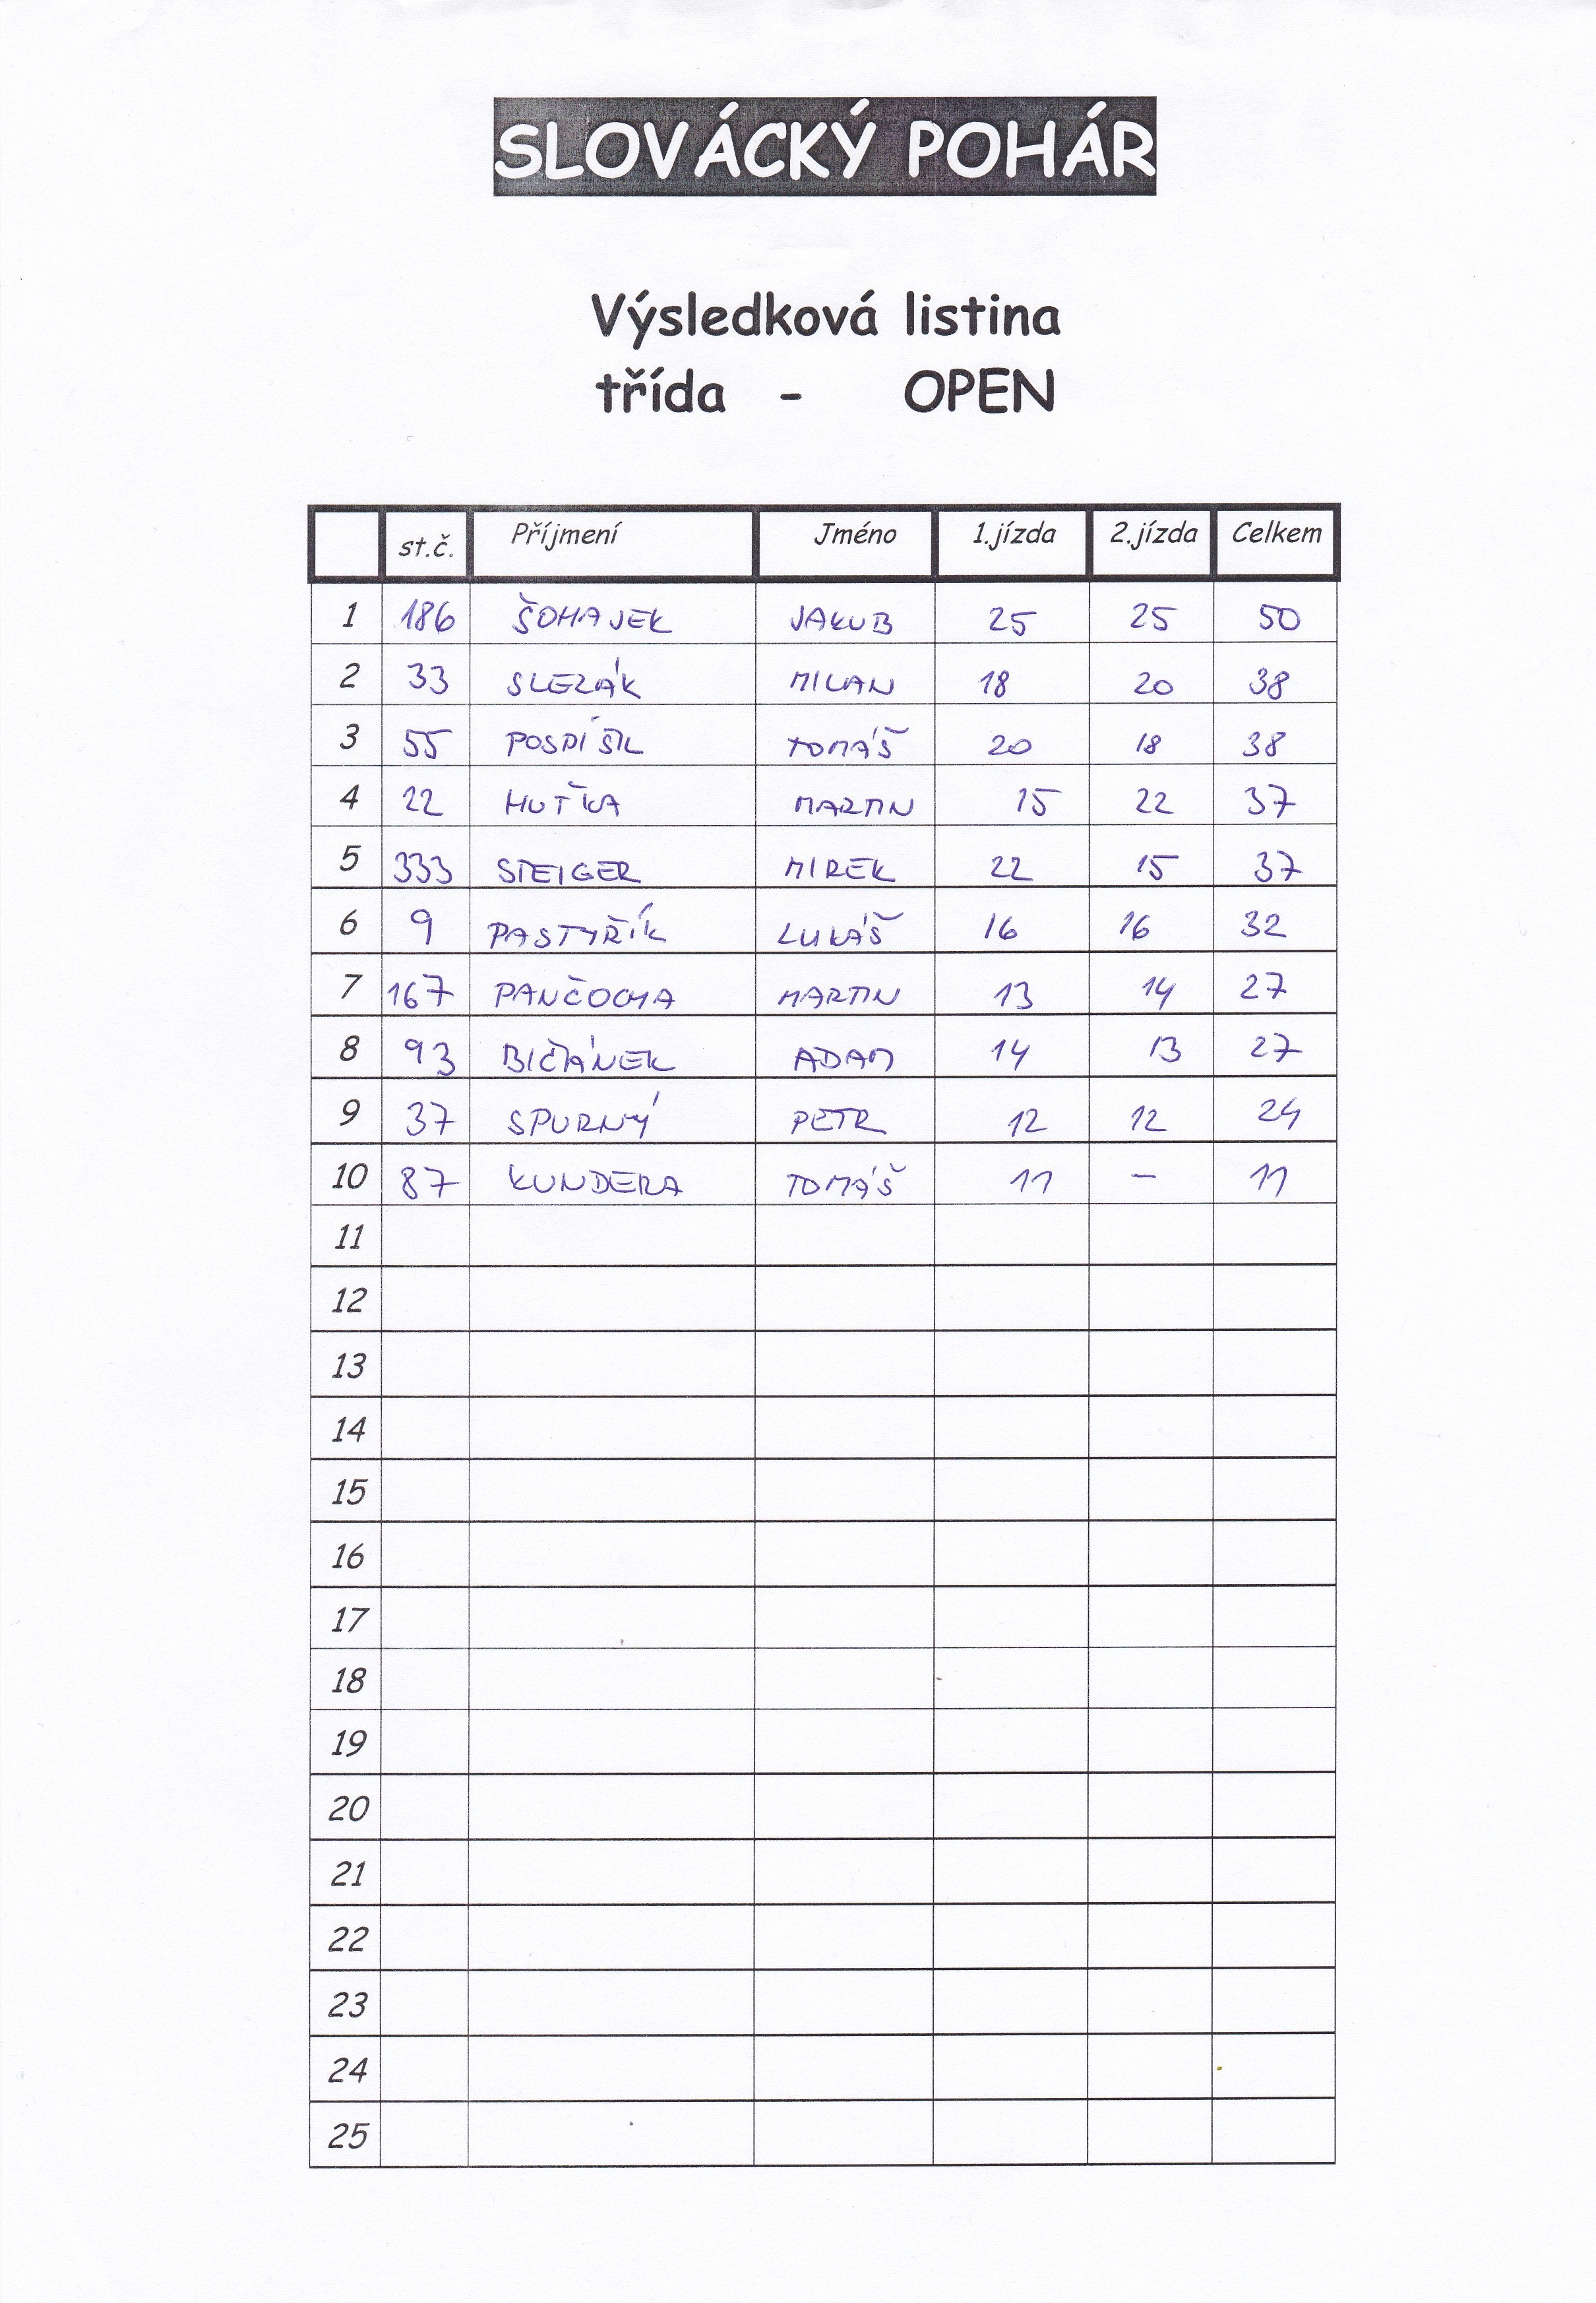 SLOVÁCKÝ POHÁR
Výsledková listina
třída - OPEN
st.č. Příjmení Jméno 1.jízda 2.jízda Celkem
1 186 ŠOHAJEK JAKUB 25 25 50
2 33 SLEZÁK MILAN 18 20 38
3 55 POSPÍŠIL TOMÁŠ 20 18 38
4 22 HUŤKA MARTIN 15 22 37
5 333 STEIGER MIREK 22 15 37
6 9 PASTYŘÍK LUKÁŠ 16 16 32
7 167 PANČOCHA MARTIN 13 14 27
8 93 BIČÁNEK ADAM 14 13 27
9 37 SPURNÝ PETR 12 12 24
10 87 KUNDERA TOMÁŠ 11 - 11
11
12
13
14
15
16
17
18
19
20
21
22
23
24
25